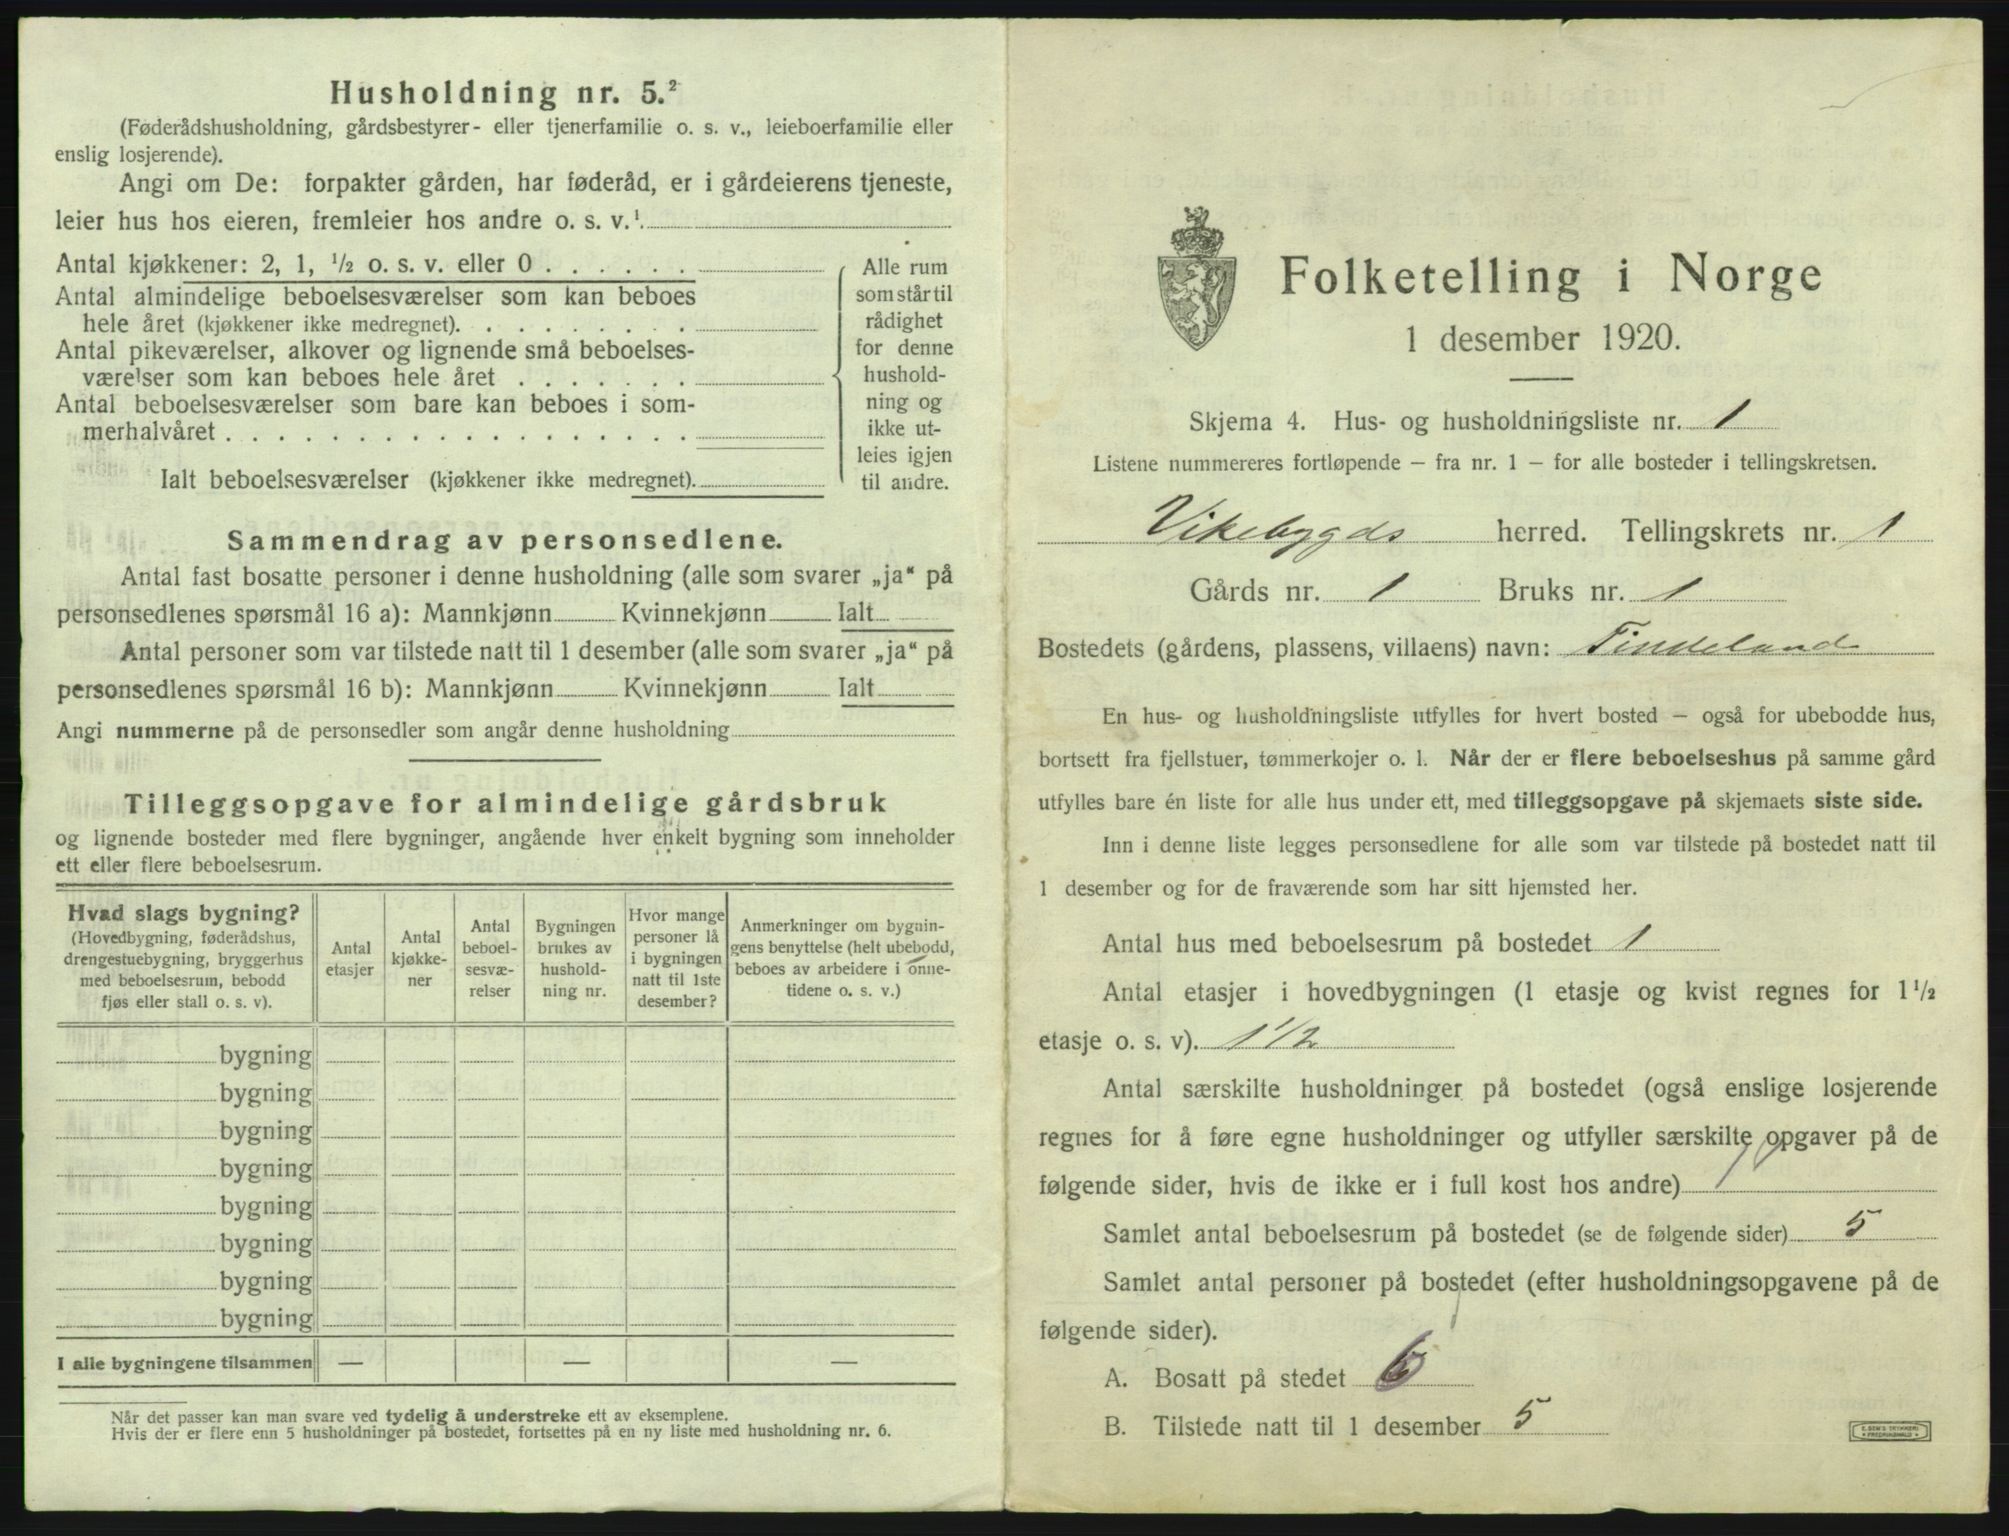 Husholdning nr. 5.²
(Føderådshusholdning, gårdsbestyrer- eller tjenerfamilie o. s. v., leieboerfamilie eller
enslig losjerende).
Angi om De: forpakter gården, har føderåd, er i gårdeierens tjeneste,
leier hus hos eieren, fremleier hos andre o. s. v.¹
Antal kjøkkener: 2, 1, ½ o. s. v. eller 0
Antal almindelige beboelsesværelser som kan beboes
hele året (kjøkkener ikke medregnet).
Antal pikeværelser, alkover og lignende små beboelses-
værelser som kan beboes hele året
Antal beboelsesværelser som bare kan beboes i som-
merhalvåret
Ialt beboelsesværelser (kjøkkener ikke medregnet).
Alle rum
som står til
rådighet
for denne
hushold-
ning og
ikke ut-
leies igjen
til andre.
Sammendrag av personsedlene.
Antal fast bosatte personer i denne husholdning (alle som svarer „ja“ på
personsedlenes spørsmål 16 a): Mannkjønn Kvinnekjønn Ialt
Antal personer som var tilstede natt til 1 desember (alle som svarer „ja“ på
personsedlenes spørsmål 16 b): Mannkjønn Kvinnekjønn Ialt
Angi nummerne på de personsedler som angår denne husholdning
Tilleggsopgave for almindelige gårdsbruk
og lignende bosteder med flere bygninger, angående hver enkelt bygning som inneholder
ett eller flere beboelsesrum.
Hvad slags bygning?
(Hovedbygning, føderådshus,
drengestuebygning, bryggerhus
med beboelsesrum, bebodd
fjøs eller stall o. s. v).
Antal
etasjer
Antal
kjøkke-
ner
Antal
beboel-
sesvæ-
relser
Bygningen
brukes av
hushold-
ning nr.
Hvor mange
personer lå
i bygningen
natt til 1ste
desember?
Anmerkninger om bygnin-
gens benyttelse (helt ubebodd,
beboes av arbeidere i onne-
tidene o. s. v.)
bygning
bygning
bygning
bygning
bygning
bygning
bygning
bygning
I alle bygningene tilsammen — — —
Når det passer kan man svare ved tydelig å understreke ett av eksemplene.
Hvis der er flere enn 5 husholdninger på bostedet, fortsettes på en ny liste med husholdning nr. 6.
Folketelling i Norge
1 desember 1920.
Skjema 4. Hus- og husholdningsliste nr. 1
Listene nummereres fortløpende – fra nr. 1 – for alle bosteder i tellingskretsen.
Vikebygds herred. Tellingskrets nr. 1
Gårds nr. 1 Bruks nr. 1
Bostedets (gårdens, plassens, villaens) navn: Tindeland
En hus- og husholdningsliste utfylles for hvert bosted – også for ubebodde hus,
bortsett fra fjellstuer, tømmerkojer o. l. Når der er flere beboelseshus på samme gård
utfylles bare én liste for alle hus under ett, med tilleggsopgave på skjemaets siste side.
Inn i denne liste legges personsedlene for alle som var tilstede på bostedet natt til
1 desember og for de fraværende som har sitt hjemsted her.
Antal hus med beboelsesrum på bostedet 1
Antal etasjer i hovedbygningen (1 etasje og kvist regnes for 1½
etasje o. s. v). 1 1/2
Antal særskilte husholdninger på bostedet (også enslige losjerende
regnes for å føre egne husholdninger og utfyller særskilte opgaver på de
følgende sider, hvis de ikke er i full kost hos andre)
Samlet antal beboelsesrum på bostedet (se de følgende sider) 5
Samlet antal personer på bostedet (efter husholdningsopgavene på de
følgende sider).
A. Bosatt på stedet 6
B. Tilstede natt til 1 desember 5